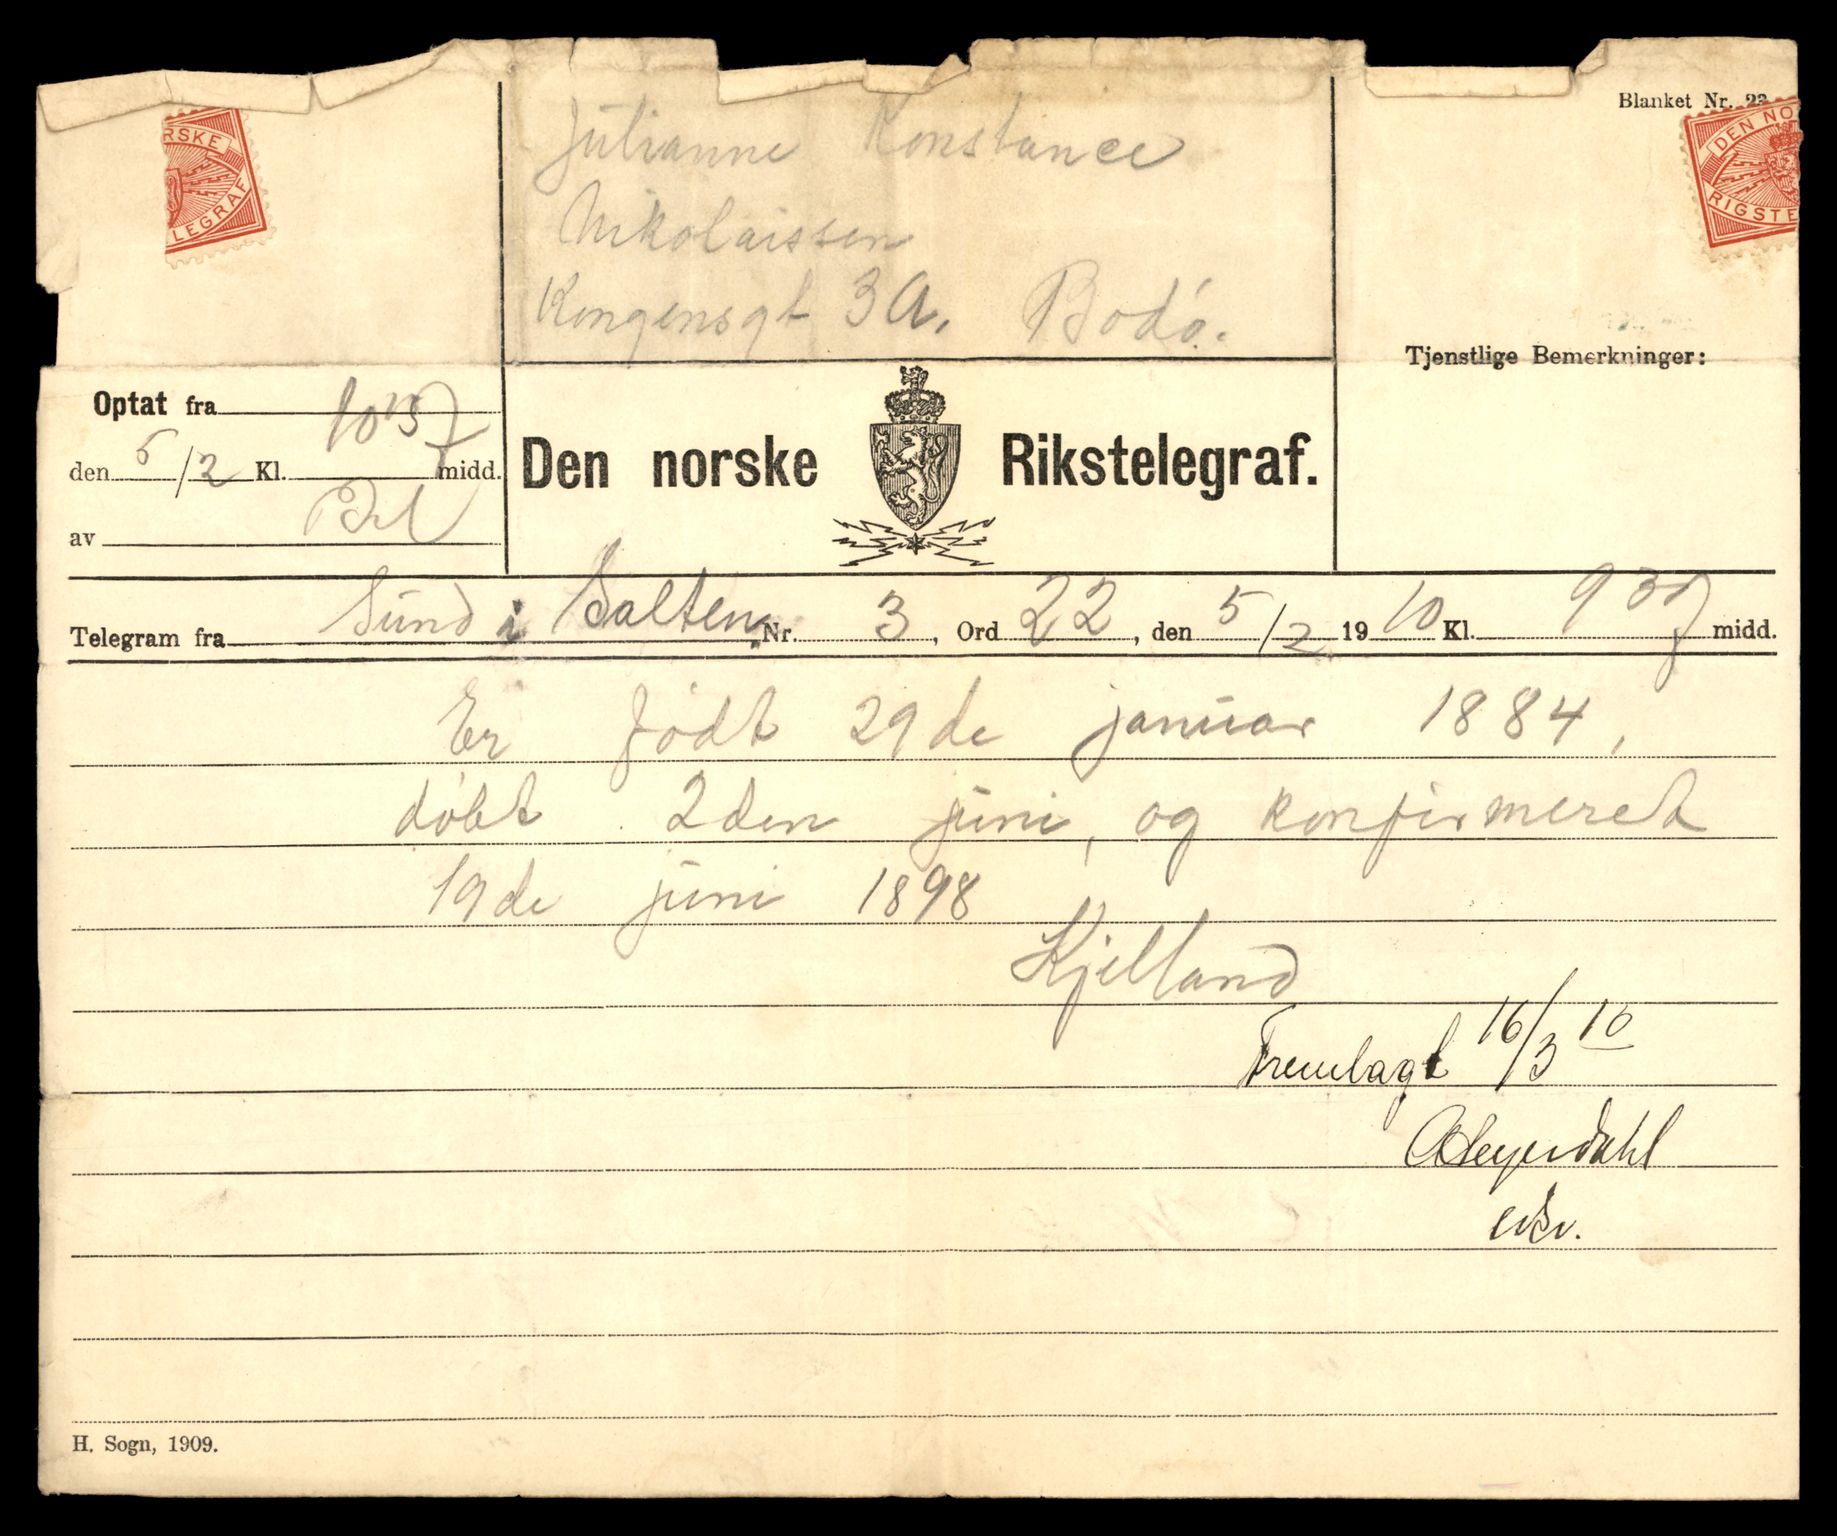 Blanket Nr. 23
RSKE
LEGRAF
DEN NO
RIGSTE
Julianne Konstance
Nikolaissen
Kongensgt 3A. Bodö.
Tjenstlige Bemerkninger:
Optat fra
den 5/2 Kl. midd.
av
Den norske Rikstelegraf.
Telegram fra Sund i Salten, Nr. 3, Ord 22, den 5/2 1910 Kl. 9 midd.
Er födt 29de januar 1884,
döbt 2den juni, og konfirmeret
19de juni 1898
Kjelland
Fremlagt 16/3 10
AHeyerdahl
H. Sogn, 1909.